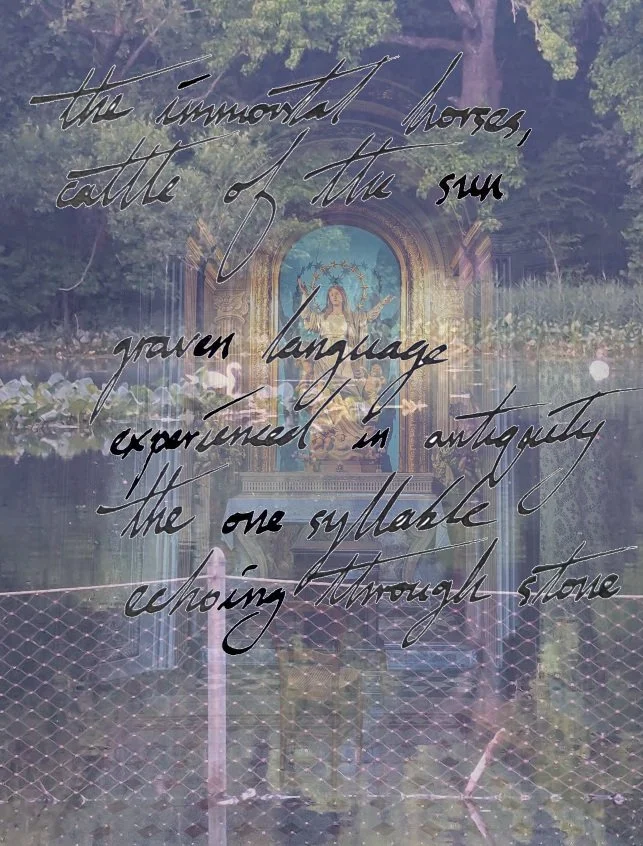 the immortal horses,
cattle of the sun
graven language
experienced in antiquity
the one syllable
echoing through stone